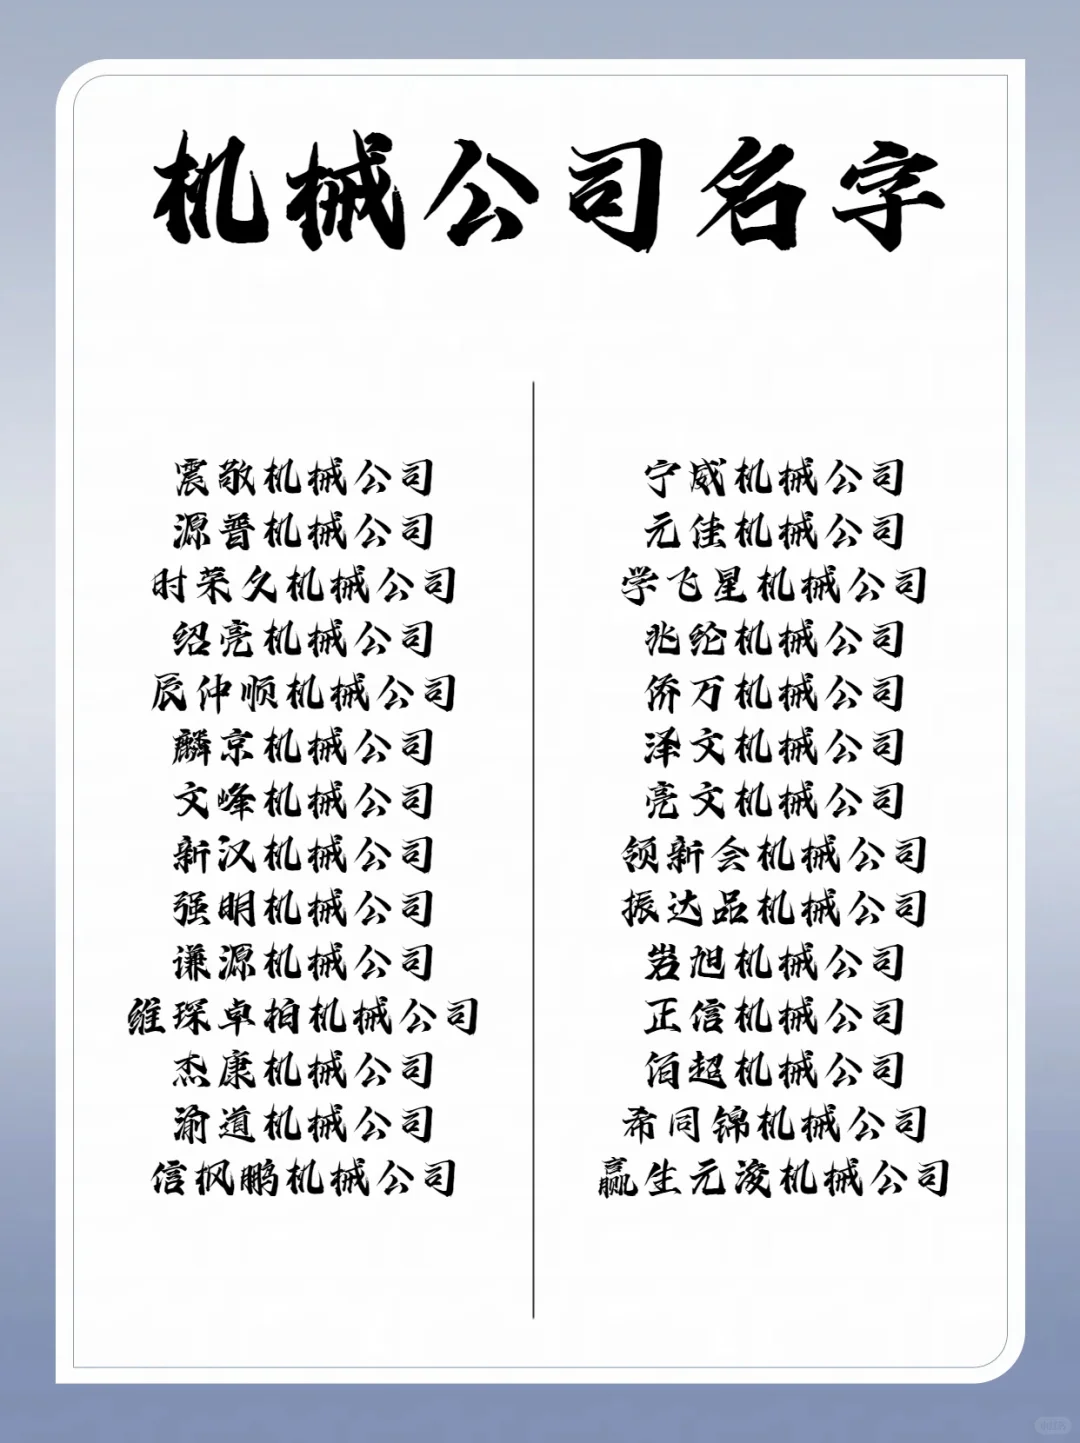 机械公司名字
震敬机械公司
源普机械公司
时荣久机械公司
绍亮机械公司
辰仲顺机械公司
麟京机械公司
文峰机械公司
新汉机械公司
强明机械公司
谦源机械公司
维琛卓柏机械公司
杰康机械公司
渝道机械公司
信枫鹏机械公司
宁威机械公司
元佳机械公司
学飞星机械公司
兆纶机械公司
侨万机械公司
泽文机械公司
亮文机械公司
领新会机械公司
振达品机械公司
岩旭机械公司
正信机械公司
佰超机械公司
希同锦机械公司
赢生元浚机械公司
小红书